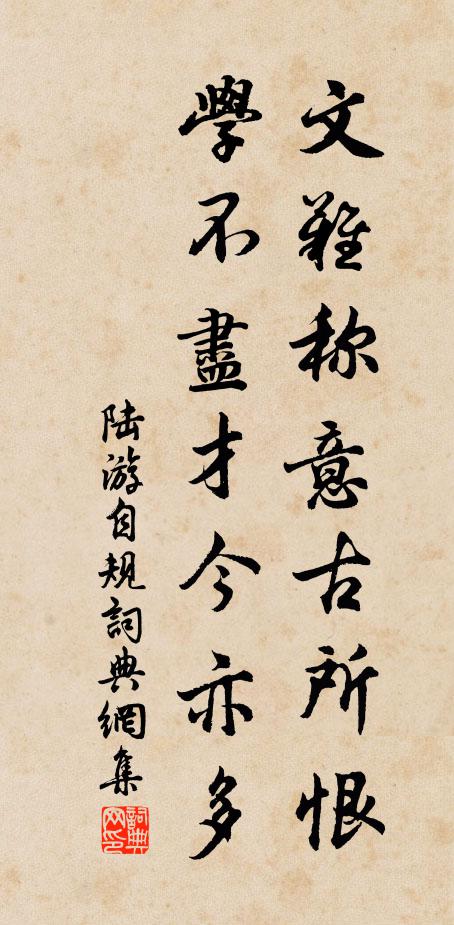 文難称意古所恨
學不盡才今亦多
陆游自規詞典網集
詞典网印